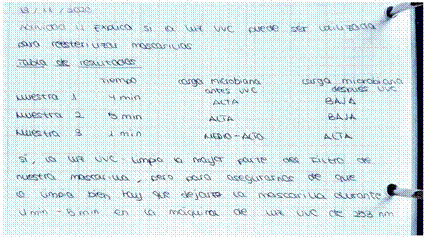 19/11/2020
Actividad 2: Explica si la luz UVC puede ser utilizada
para reesterilizar mascarillas
Tabla de resultados
tiempo carga microbiana antes UVC carga microbiana después UVC
Muestra 1 4 min ALTA BAJA
Muestra 2 5 min ALTA BAJA
Muestra 3 1 min MEDIO-ALTO ALTA
Sí, la luz UVC limpia la mayor parte del filtro de
nuestra mascarilla, pero para asegurarnos de que
la limpia bien hay que dejarla la mascarilla durante
4 min - 5 min en la máquina de luz UVC de 253 nm